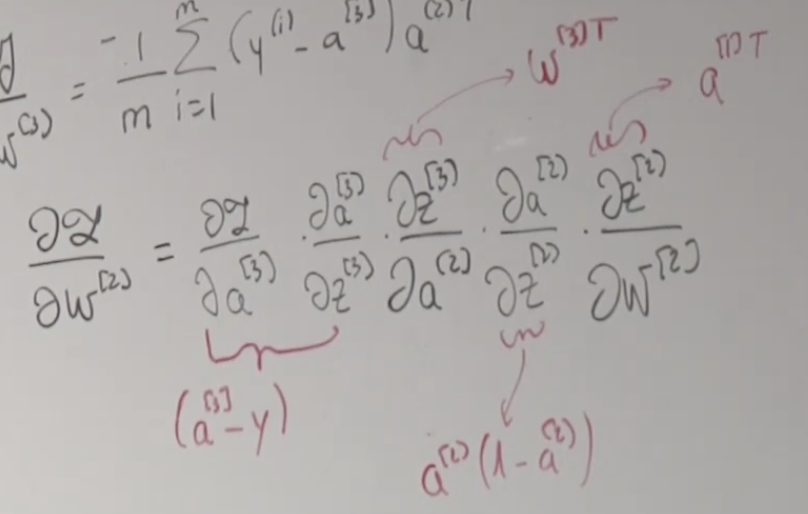 ∂/W^(3) = -1/m Σ_{i=1}^{m} (y^(i) - a^[3]) a^(2)T
W^[3]T
a^[1]T
∂ℒ/∂W^[2] = ∂ℒ/∂a^[3] · ∂a^[3]/∂z^[3] · ∂z^[3]/∂a^(2) · ∂a^[2]/∂z^[2] · ∂z^[2]/∂W^[2]
(a^[3] - y)
a^[2] (1 - a^[2])